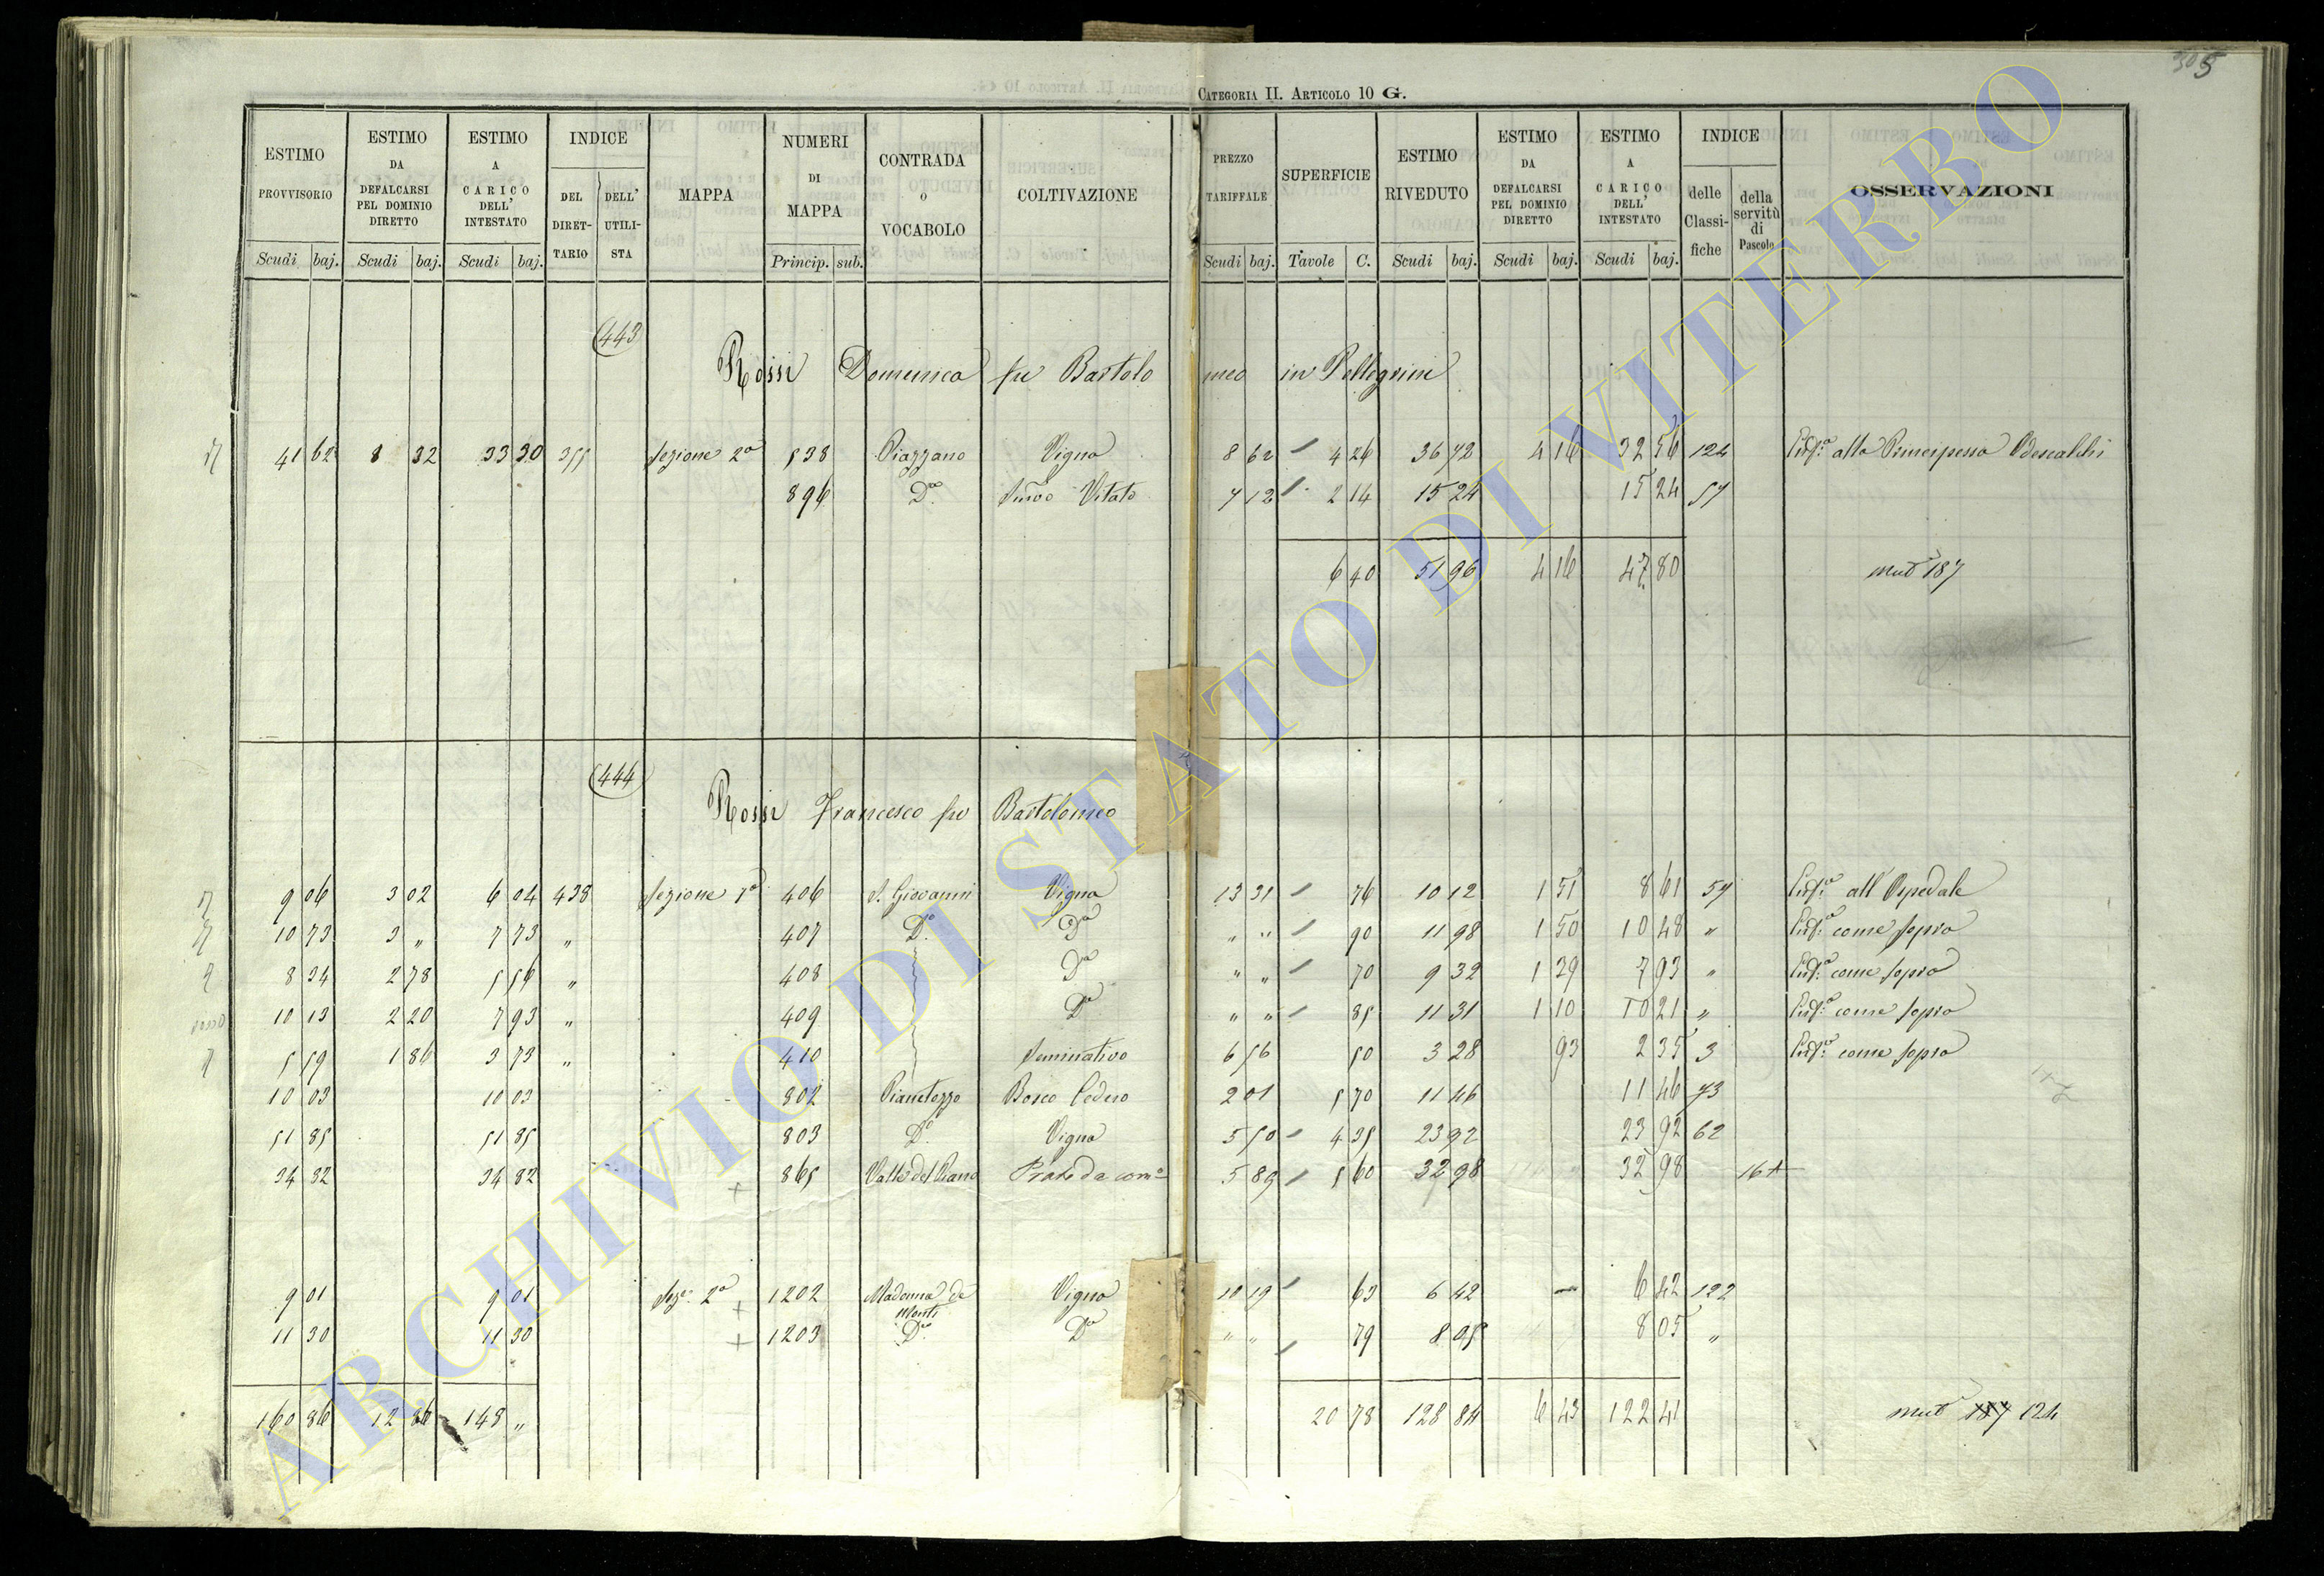 305
CATEGORIA II. ARTICOLO 10 G.
ESTIMO PROVVISORIO Scudi baj.
ESTIMO DA DEFALCARSI PEL DOMINIO DIRETTO Scudi baj.
ESTIMO A CARICO DELL' INTESTATO Scudi baj.
INDICE DEL DIRET-TARIO DELL' UTILI-STA
MAPPA
NUMERI DI MAPPA Princip. sub.
CONTRADA O VOCABOLO
COLTIVAZIONE
PREZZO TARIFFALE Scudi baj.
SUPERFICIE Tavole C.
ESTIMO RIVEDUTO Scudi baj.
ESTIMO DA DEFALCARSI PEL DOMINIO DIRETTO Scudi baj.
ESTIMO A CARICO DELL' INTESTATO Scudi baj.
INDICE delle Classi-fiche della servitù di Pascolo
OSSERVAZIONI
443
Rossi Domenica fu Bartolomeo in Pellegrini
41 62 8 32 33 30 355 Sezione 2a 538 Piazzano Vigna 8 62 4 26 36 72 4 16 32 56 124 Enfa alla Principessa Odescalchi
896 Do Vitato 7 12 2 14 15 24 15 24 57
6 40 51 96 4 16 47 80 mut 187
444
Rossi Francesco fu Bartolomeo
9 06 3 02 6 04 438 Sezione 1a 406 S. Giovanni Vigna 13 31 76 10 12 1 51 8 61 57 Enfa all'Ospedale
10 73 3 " 7 73 " 407 Do Da " " 90 11 98 1 50 10 48 " Enfa come sopra
8 34 2 78 5 56 " 408 Da " " 70 9 32 1 39 7 93 " Enfa come sopra
10 13 2 20 7 93 " 409 Da " " 85 11 31 1 10 10 21 " Enfa come sopra
5 59 1 86 3 73 " 410 Seminativo 6 56 50 3 28 93 2 35 3 Enfa come sopra
10 03 10 03 802 Pianetozzo Bosco Ceduo 2 01 5 70 11 46 11 46 73
51 85 51 85 803 Do Vigna 5 50 4 35 23 92 23 92 62
34 32 34 32 865 Valle del Piano Prato da 5 89 5 60 32 98 32 98 16
9 01 9 01 Seze 2a 1202 Madonna de Monti Vigna 10 19 63 6 42 6 42 122
11 30 11 30 1203 Do Da " " 79 8 05 8 05 "
160 86 12 86 148 " 20 78 128 84 6 43 122 41 mut 187 124
ARCHIVIO DI STATO DI VITERBO